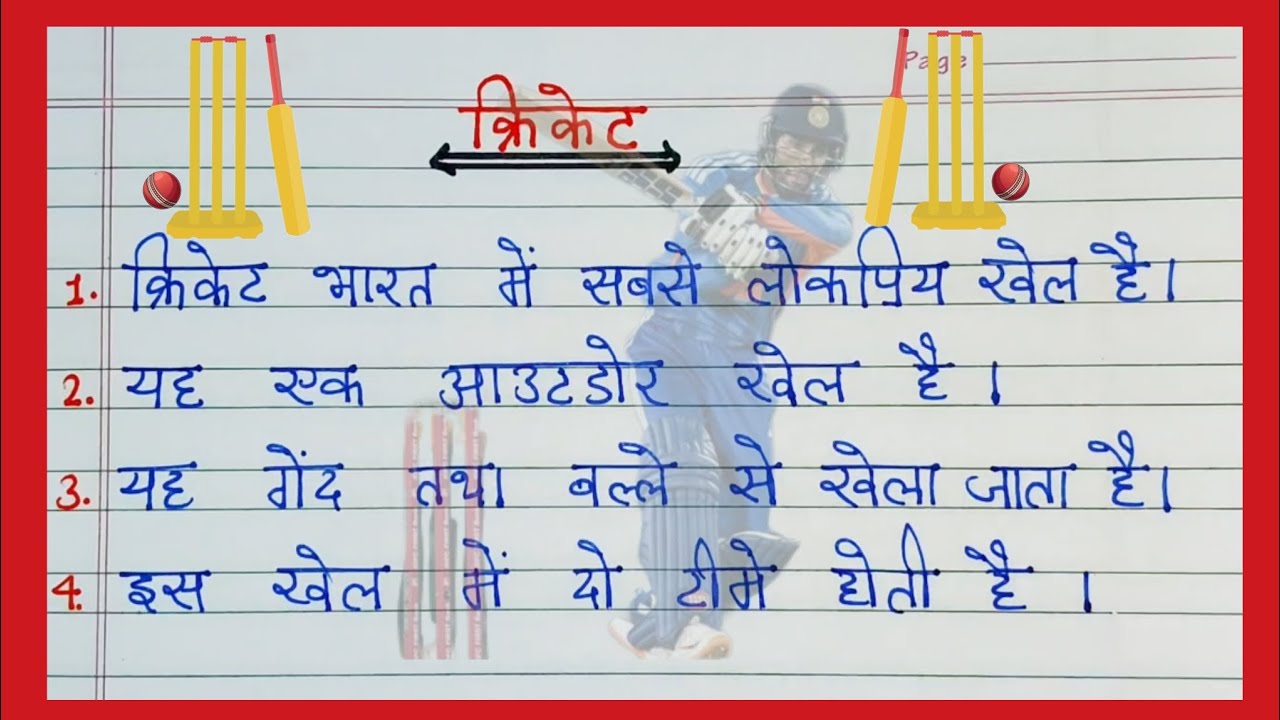 Page
क्रिकेट
1. क्रिकेट भारत में सबसे लोकप्रिय खेल है।
2. यह एक आउटडोर खेल है ।
3. यह गेंद तथा बल्ले से खेला जाता है।
4. इस खेल में दो टीमे होती है ।